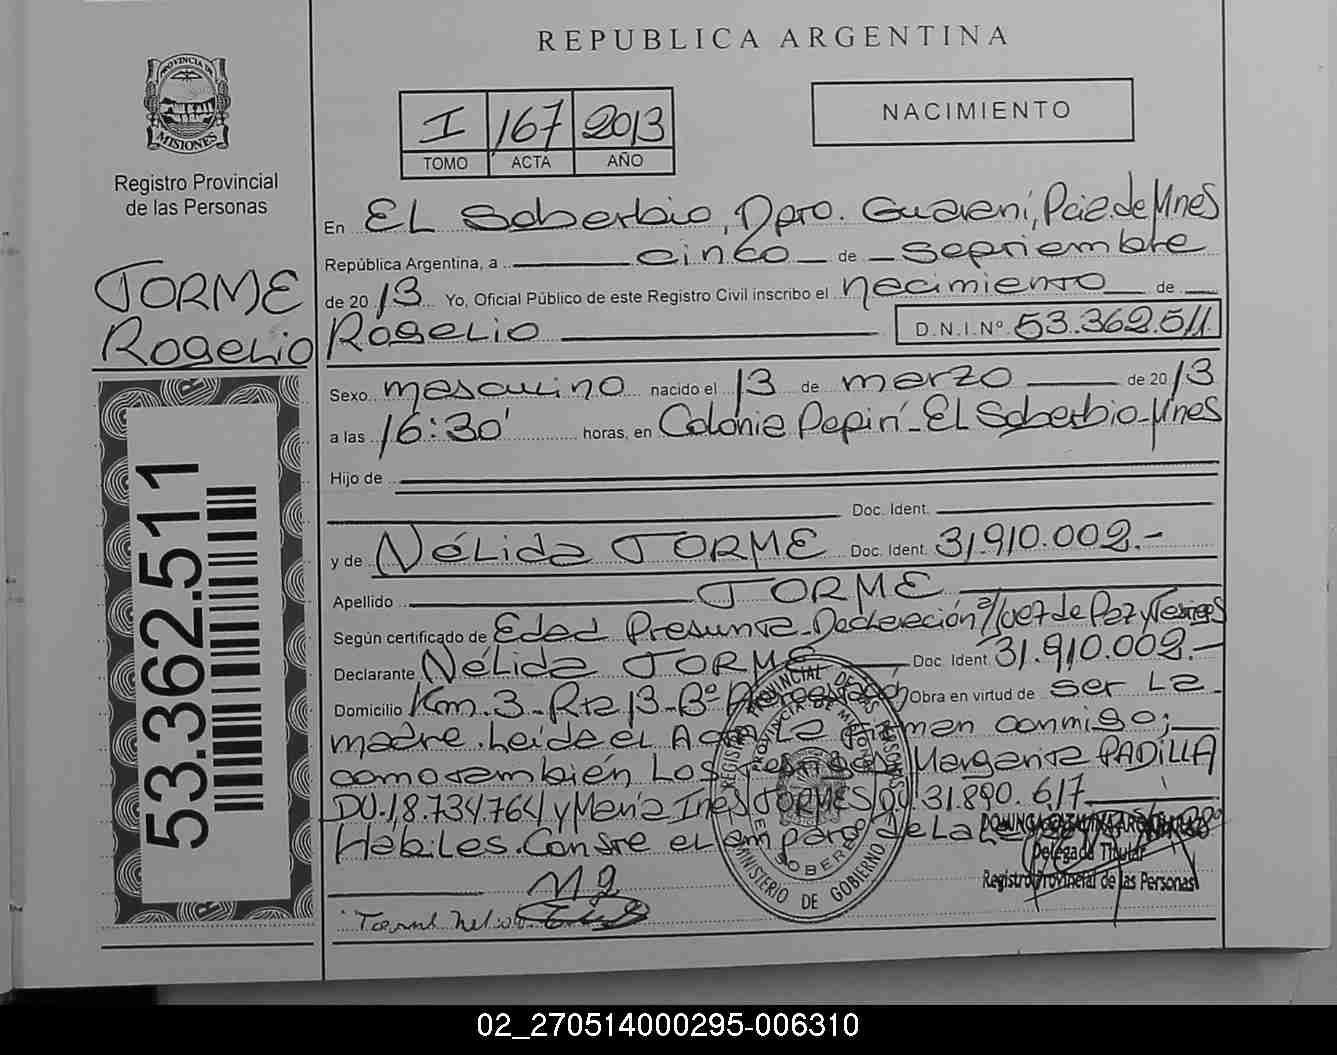 REPUBLICA ARGENTINA
PROVINCIA DE
MISIONES
Registro Provincial
de las Personas
I 167 2013
TOMO ACTA AÑO
NACIMIENTO
TORME
Rogelio
53.362.511
En EL Soberbio, Dpto. Guaraní, Pcia. de Mnes
República Argentina, a cinco de septiembre
de 2013 Yo, Oficial Público de este Registro Civil inscribo el nacimiento de
Rogelio D.N.I.Nº 53.362.511
Sexo masculino nacido el 13 de marzo de 2013
a las 16:30' horas, en Colonia Pepirí - EL Soberbio - Mnes
Hijo de
Doc. Ident.
y de Nélida TORME Doc. Ident. 31.910.002.-
Apellido TORME
Según certificado de Edad Presunta - Declaración a/Juez de Paz y Testigos
Declarante Nélida TORME Doc. Ident. 31.910.002.-
Domicilio Km. 3 - Rta 13 - Bº Obra en virtud de ser La
madre. Leída el Acta La firman conmigo;
como también Los testigos Margarita PADILLA
DU. 18.734.764 y María Inés TORMES DU. 31.890.617
Habiles. Conste el amparo de La
REGISTRO PROVINCIAL DE LAS PERSONAS
PROVINCIA DE MISIONES
EL SOBERBIO
MINISTERIO DE GOBIERNO
Delegada Titular
Registro Provincial de las Personas
02_270514000295-006310